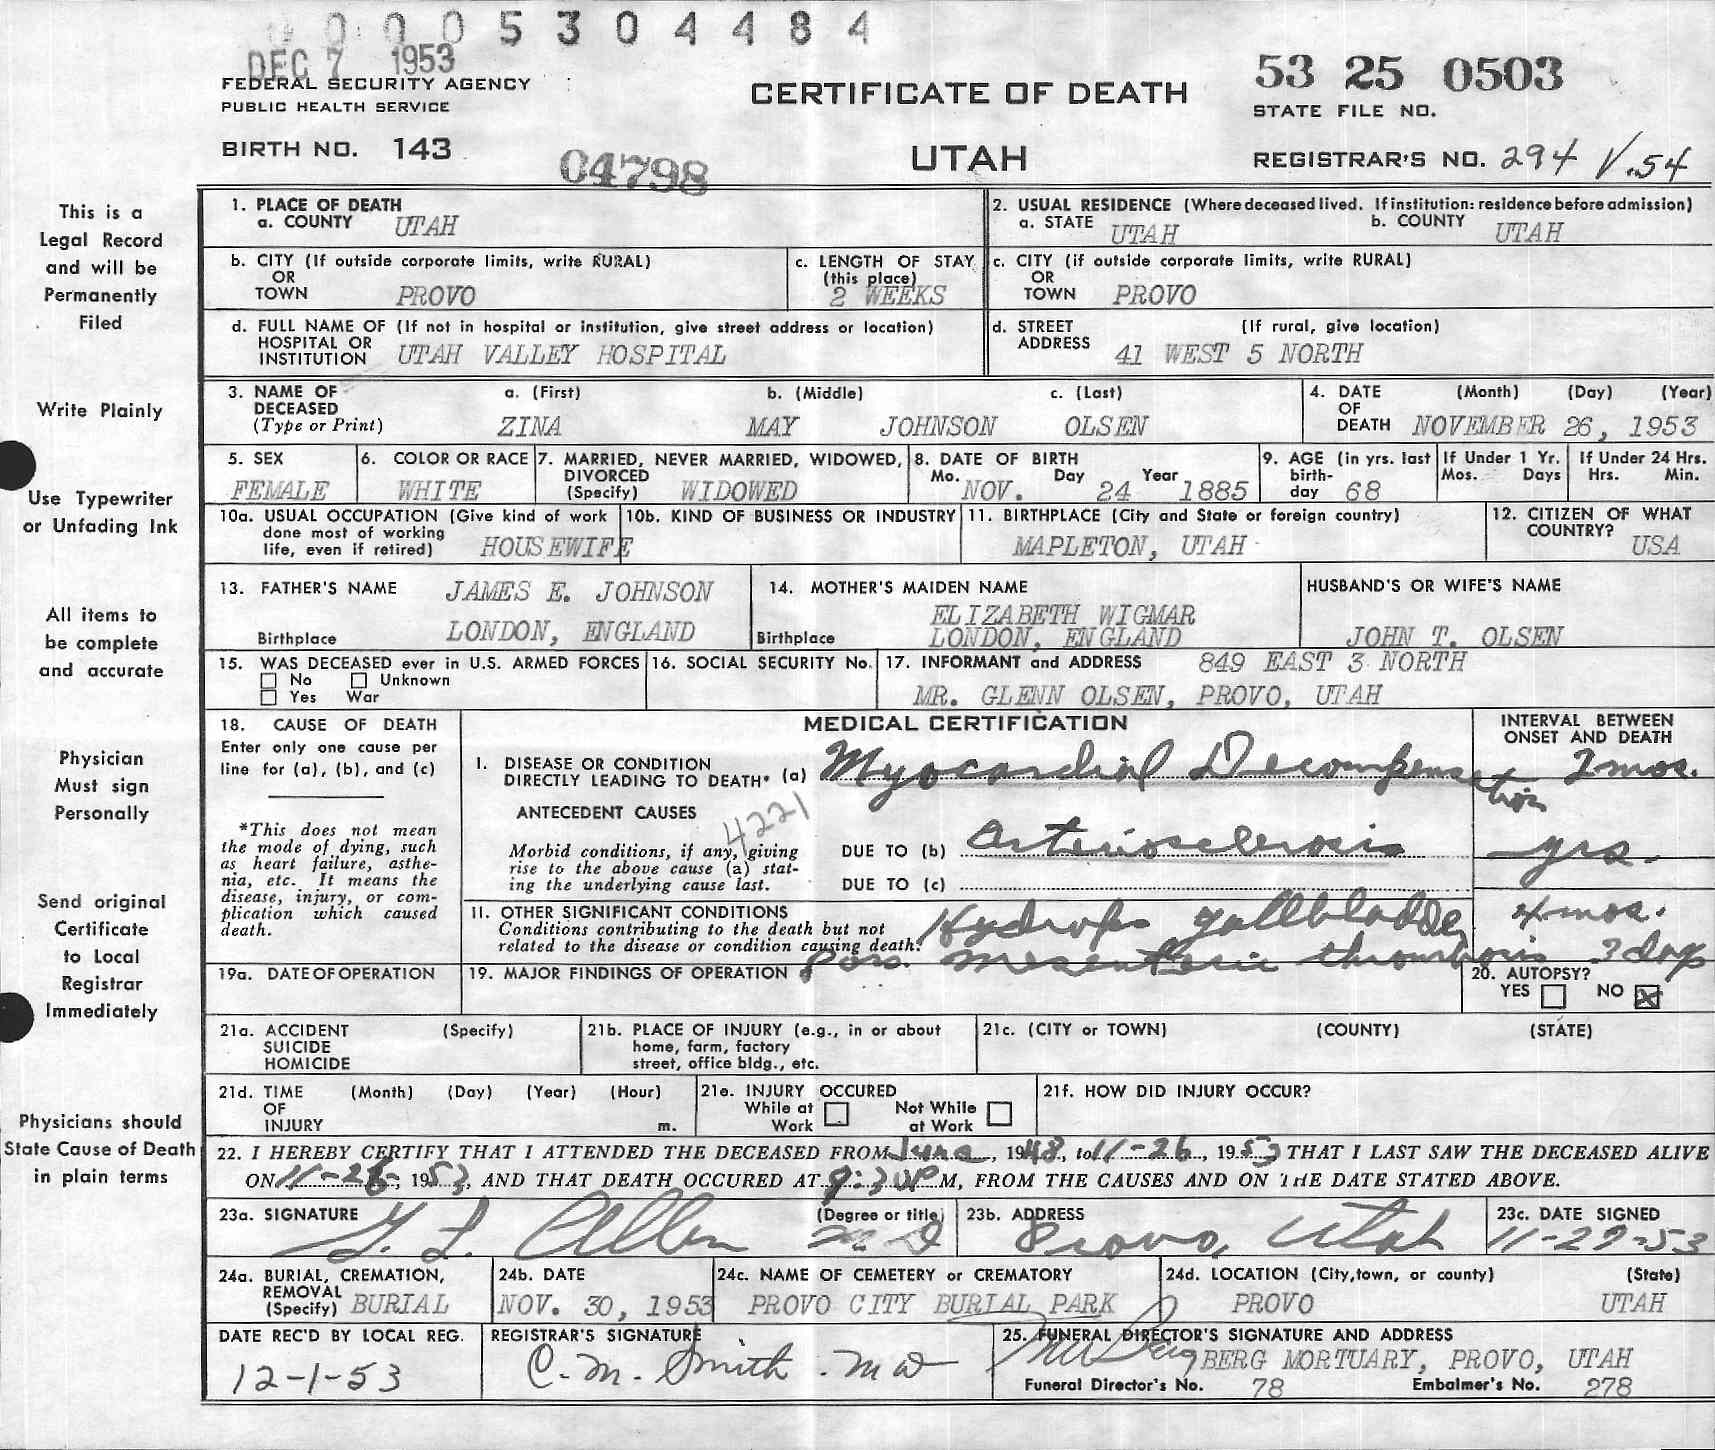 0 0 0 0 5 3 0 4 4 8 4
DEC 7 1953
FEDERAL SECURITY AGENCY
PUBLIC HEALTH SERVICE
BIRTH NO. 143
04798
CERTIFICATE OF DEATH
UTAH
53 25 0503
STATE FILE NO.
REGISTRAR'S NO. 294 V.54
This is a
Legal Record
and will be
Permanently
Filed
Write Plainly
Use Typewriter
or Unfading Ink
All items to
be complete
and accurate
Physician
Must sign
Personally
Send original
Certificate
to Local
Registrar
Immediately
Physicians should
State Cause of Death
in plain terms
1. PLACE OF DEATH
a. COUNTY UTAH
2. USUAL RESIDENCE (Where deceased lived. If institution: residence before admission)
a. STATE UTAH b. COUNTY UTAH
b. CITY (If outside corporate limits, write RURAL)
OR
TOWN PROVO
c. LENGTH OF STAY
(this place)
2 WEEKS
c. CITY (if outside corporate limits, write RURAL)
OR
TOWN PROVO
d. FULL NAME OF (If not in hospital or institution, give street address or location)
HOSPITAL OR
INSTITUTION UTAH VALLEY HOSPITAL
d. STREET (If rural, give location)
ADDRESS 41 WEST 5 NORTH
3. NAME OF a. (First) b. (Middle) c. (Last)
DECEASED
(Type or Print) ZINA MAY JOHNSON OLSEN
4. DATE (Month) (Day) (Year)
OF
DEATH NOVEMBER 26, 1953
5. SEX
FEMALE
6. COLOR OR RACE
WHITE
7. MARRIED, NEVER MARRIED, WIDOWED,
DIVORCED
(Specify) WIDOWED
8. DATE OF BIRTH
Mo. Day Year
NOV. 24 1885
9. AGE (in yrs. last
birth-
day 68
If Under 1 Yr.
Mos. Days
If Under 24 Hrs.
Hrs. Min.
10a. USUAL OCCUPATION (Give kind of work
done most of working
life, even if retired) HOUSEWIFE
10b. KIND OF BUSINESS OR INDUSTRY
11. BIRTHPLACE (City and State or foreign country)
MAPLETON, UTAH
12. CITIZEN OF WHAT
COUNTRY?
USA
13. FATHER'S NAME JAMES E. JOHNSON
Birthplace LONDON, ENGLAND
14. MOTHER'S MAIDEN NAME
ELIZABETH WIGMAR
Birthplace LONDON, ENGLAND
HUSBAND'S OR WIFE'S NAME
JOHN T. OLSEN
15. WAS DECEASED ever in U.S. ARMED FORCES
No Unknown
Yes War
16. SOCIAL SECURITY No.
17. INFORMANT and ADDRESS 849 EAST 3 NORTH
MR. GLENN OLSEN, PROVO, UTAH
18. CAUSE OF DEATH
Enter only one cause per
line for (a), (b), and (c)
*This does not mean
the mode of dying, such
as heart failure, asthe-
nia, etc. It means the
disease, injury, or com-
plication which caused
death.
MEDICAL CERTIFICATION
INTERVAL BETWEEN
ONSET AND DEATH
I. DISEASE OR CONDITION
DIRECTLY LEADING TO DEATH* (a) Myocardial Decompensation 2 mos.
ANTECEDENT CAUSES
4221
Morbid conditions, if any, giving
rise to the above cause (a) stat-
ing the underlying cause last.
DUE TO (b) Arteriosclerosis yrs.
DUE TO (c)
II. OTHER SIGNIFICANT CONDITIONS
Conditions contributing to the death but not
related to the disease or condition causing death.
Hydrops gallbladder 4 mos.
Poss. mesenteric thrombosis 3 days
19a. DATE OF OPERATION
19. MAJOR FINDINGS OF OPERATION
20. AUTOPSY?
YES NO X
21a. ACCIDENT (Specify)
SUICIDE
HOMICIDE
21b. PLACE OF INJURY (e.g., in or about
home, farm, factory
street, office bldg., etc.
21c. (CITY or TOWN) (COUNTY) (STATE)
21d. TIME (Month) (Day) (Year) (Hour)
OF
INJURY m.
21e. INJURY OCCURED
While at Work Not While at Work
21f. HOW DID INJURY OCCUR?
22. I HEREBY CERTIFY THAT I ATTENDED THE DECEASED FROM June, 1948, to 11-26, 1953 THAT I LAST SAW THE DECEASED ALIVE
ON 11-26, 1953, AND THAT DEATH OCCURED AT 9:30 P M, FROM THE CAUSES AND ON THE DATE STATED ABOVE.
23a. SIGNATURE (Degree or title)
G. L. Allen M D
23b. ADDRESS
Provo, Utah
23c. DATE SIGNED
11-29-53
24a. BURIAL, CREMATION,
REMOVAL
(Specify) BURIAL
24b. DATE
NOV. 30, 1953
24c. NAME OF CEMETERY or CREMATORY
PROVO CITY BURIAL PARK
24d. LOCATION (City, town, or county) (State)
PROVO UTAH
DATE REC'D BY LOCAL REG.
12-1-53
REGISTRAR'S SIGNATURE
C. M. Smith. MD
25. FUNERAL DIRECTOR'S SIGNATURE AND ADDRESS
BERG MORTUARY, PROVO, UTAH
Funeral Director's No. 78 Embalmer's No. 278